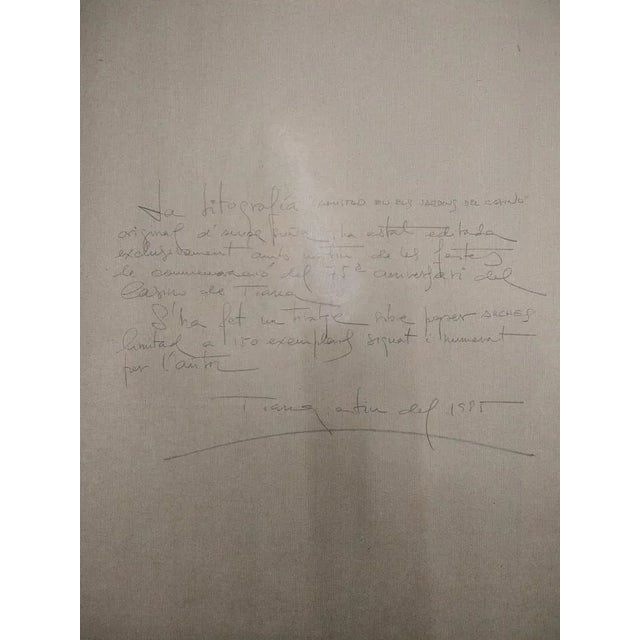 La litografía "AMISTAD EN ELS JARDINS DEL CASINO"
original d' ha estat editada
exclusivament amb motiu de les festes
de commemoració del 75è aniversari del
Casino de Tiana
S'ha fet un tiratge sobre paper ARCHES
limitat a 150 exemplars signat i numerat
per l'autor
Tiana, estiu del 1985